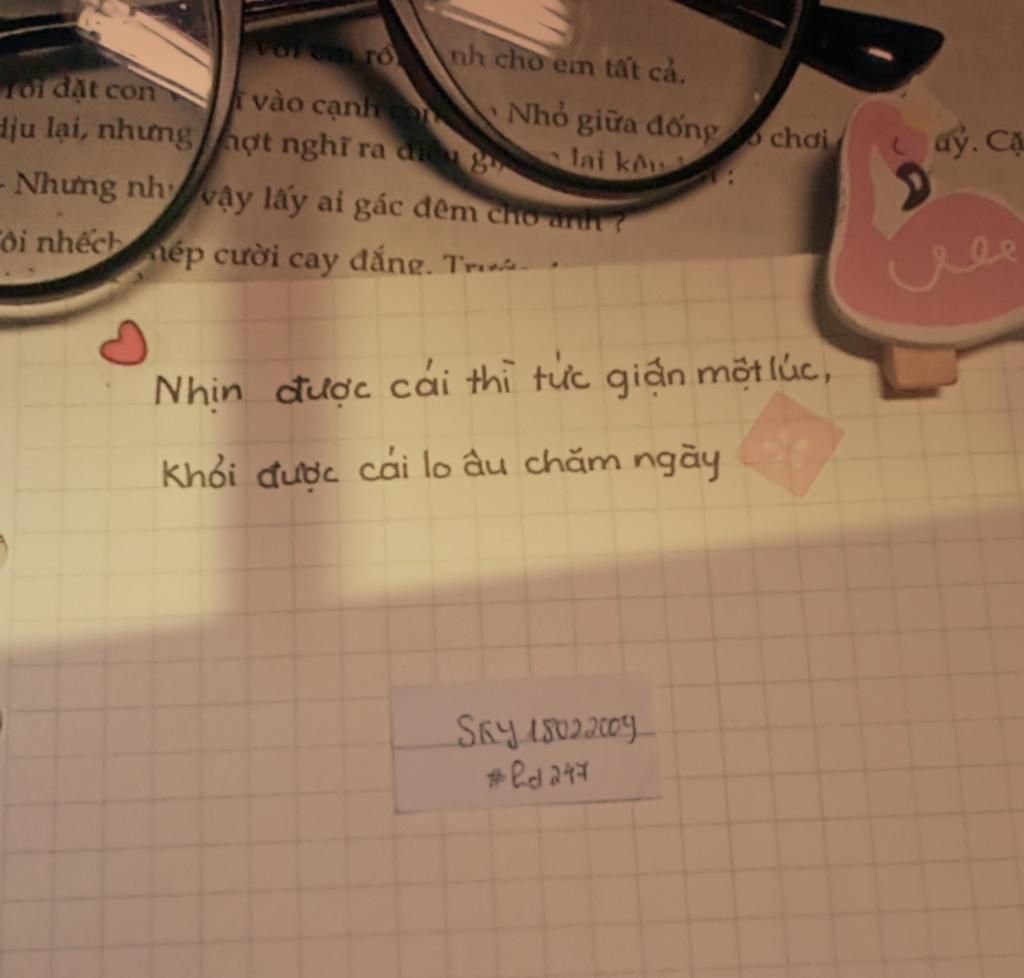 với em rồi nh cho em tất cả.
Tôi đặt con vào cạnh Nhỏ giữa đống chơi uỷ. Cặ
dịu lại, nhưng chợt nghĩ ra lại
- Nhưng như vậy lấy ai gác đêm cho anh ?
Tôi nhếch mép cười cay đắng.
Nhịn được cái thì tức giận một lúc,
Khỏi được cái lo âu chăm ngày
SKY18022009
#Ld247